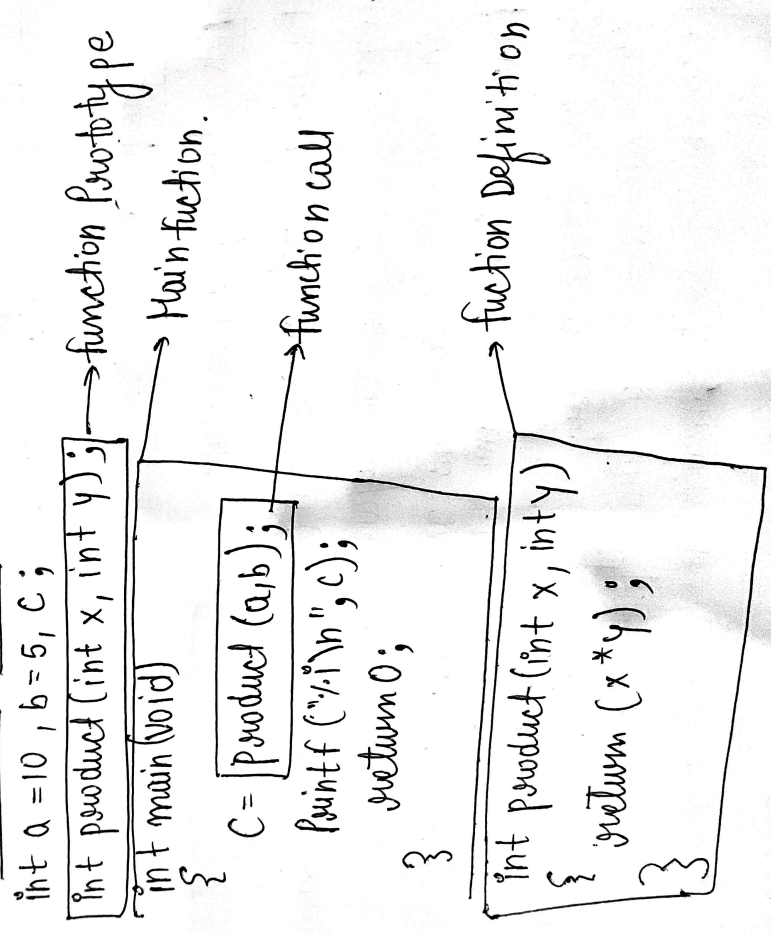 int a = 10, b = 5, C;
int product (int x, int y); → function Prototype
int main (void) → Main fuction.
{
C = product (a,b); → function call
Printf ("%i\n", C);
return 0;
}
int product (int x, int y) → fuction Definition
{
return (x*y);
}